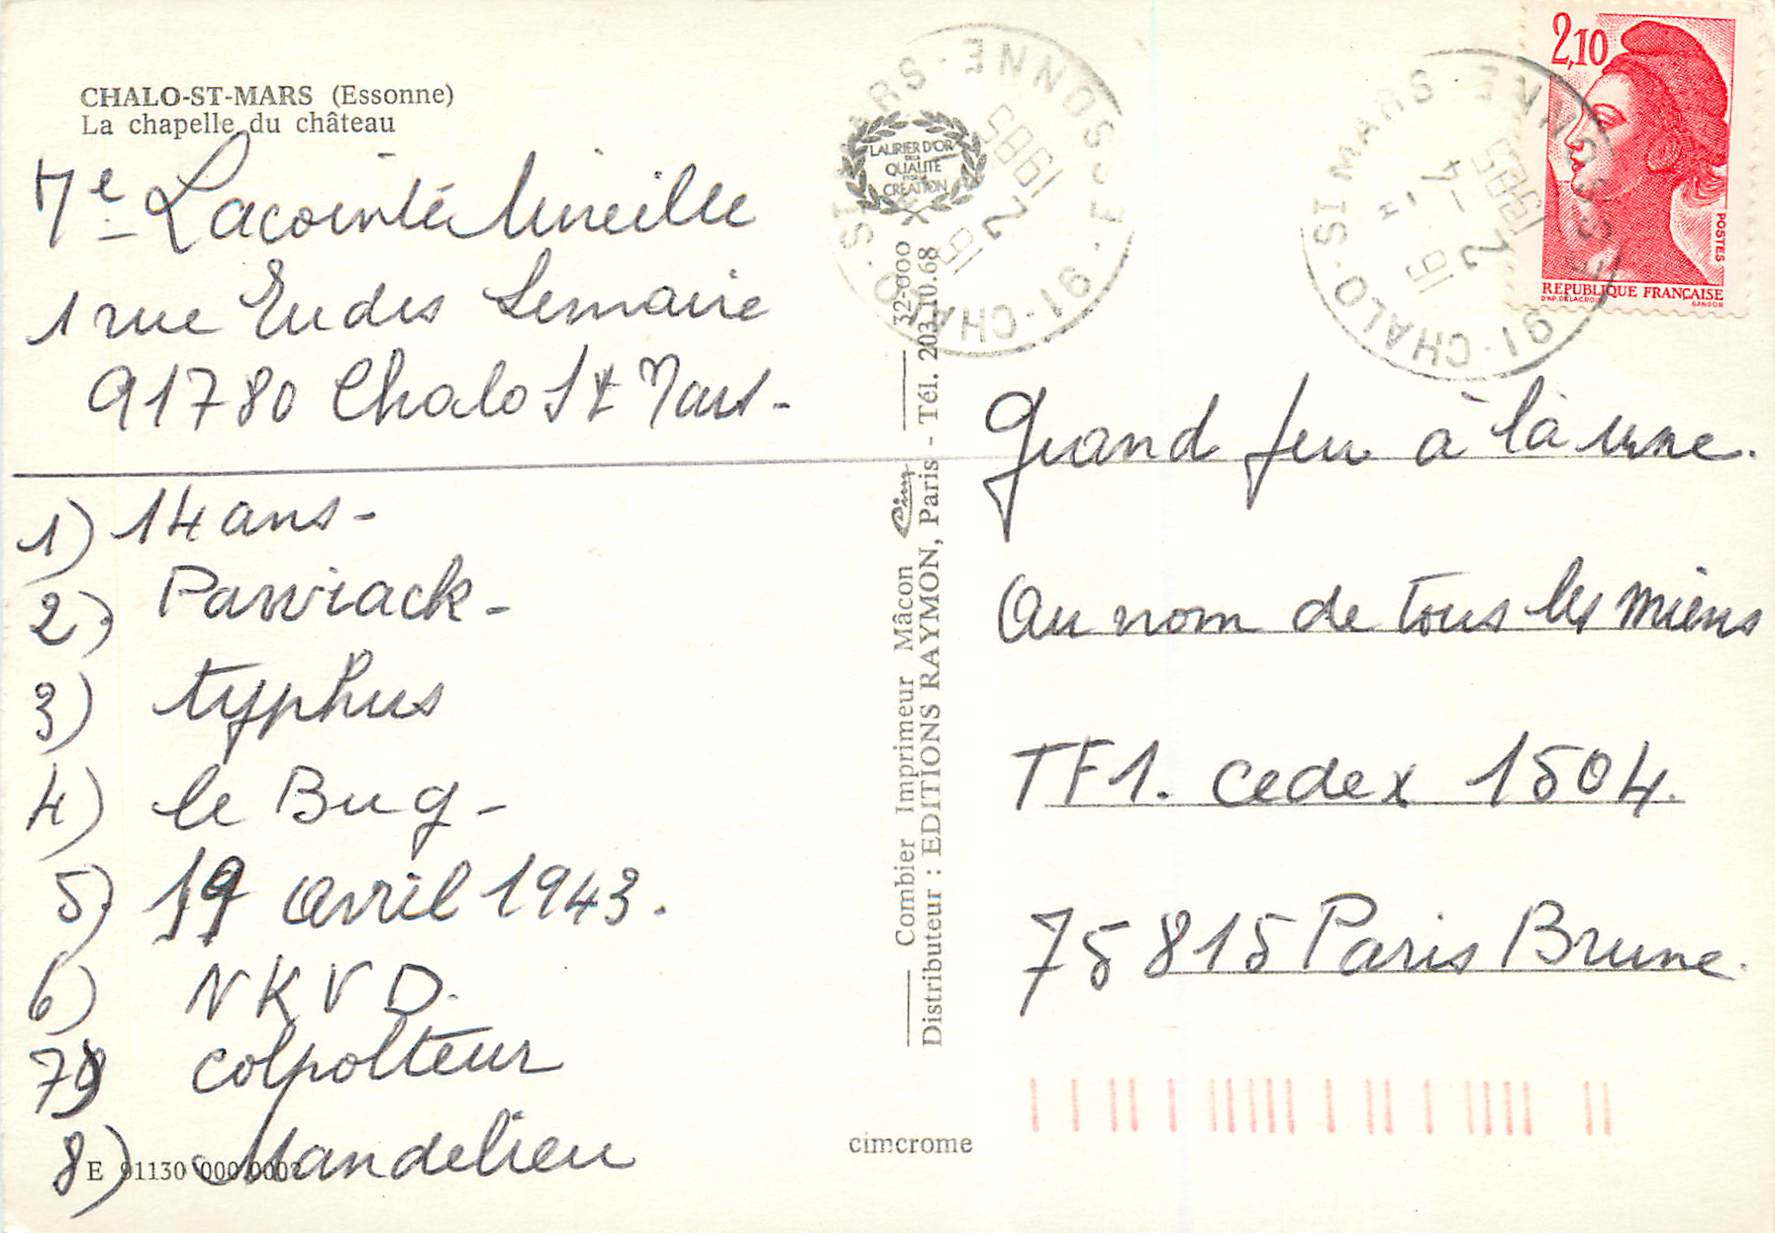 CHALO-ST-MARS (Essonne)
La chapelle du château
Me Lacointé Mireille
1 rue Eudes Lemaire
91780 Chalo St Mars -
1) 14 ans -
2) Pawiack -
3) typhus
4) le Bug -
5) 19 avril 1943.
6) NKVD.
7) colpolteur
8) Mandelieu
E 91130 000 000
cimcrome
32-000
Combier Imprimeur Mâcon Cim
Distributeur : EDITIONS RAYMON, Paris - Tél. 203.10.68
LAURIER D'OR
DE LA
QUALITÉ
CRÉATION
91 - CHALO - ST MARS - ESSONNE
16
2
1985
91 - CHALO - ST MARS - ESSONNE
16 H
2 - 4
1985
2,10
POSTES
REPUBLIQUE FRANÇAISE
D'AP. DELACROIX
GANDON
Grand feu à la une.
Au nom de tous les miens
TF1. Cedex 1504.
75815 Paris Brune.